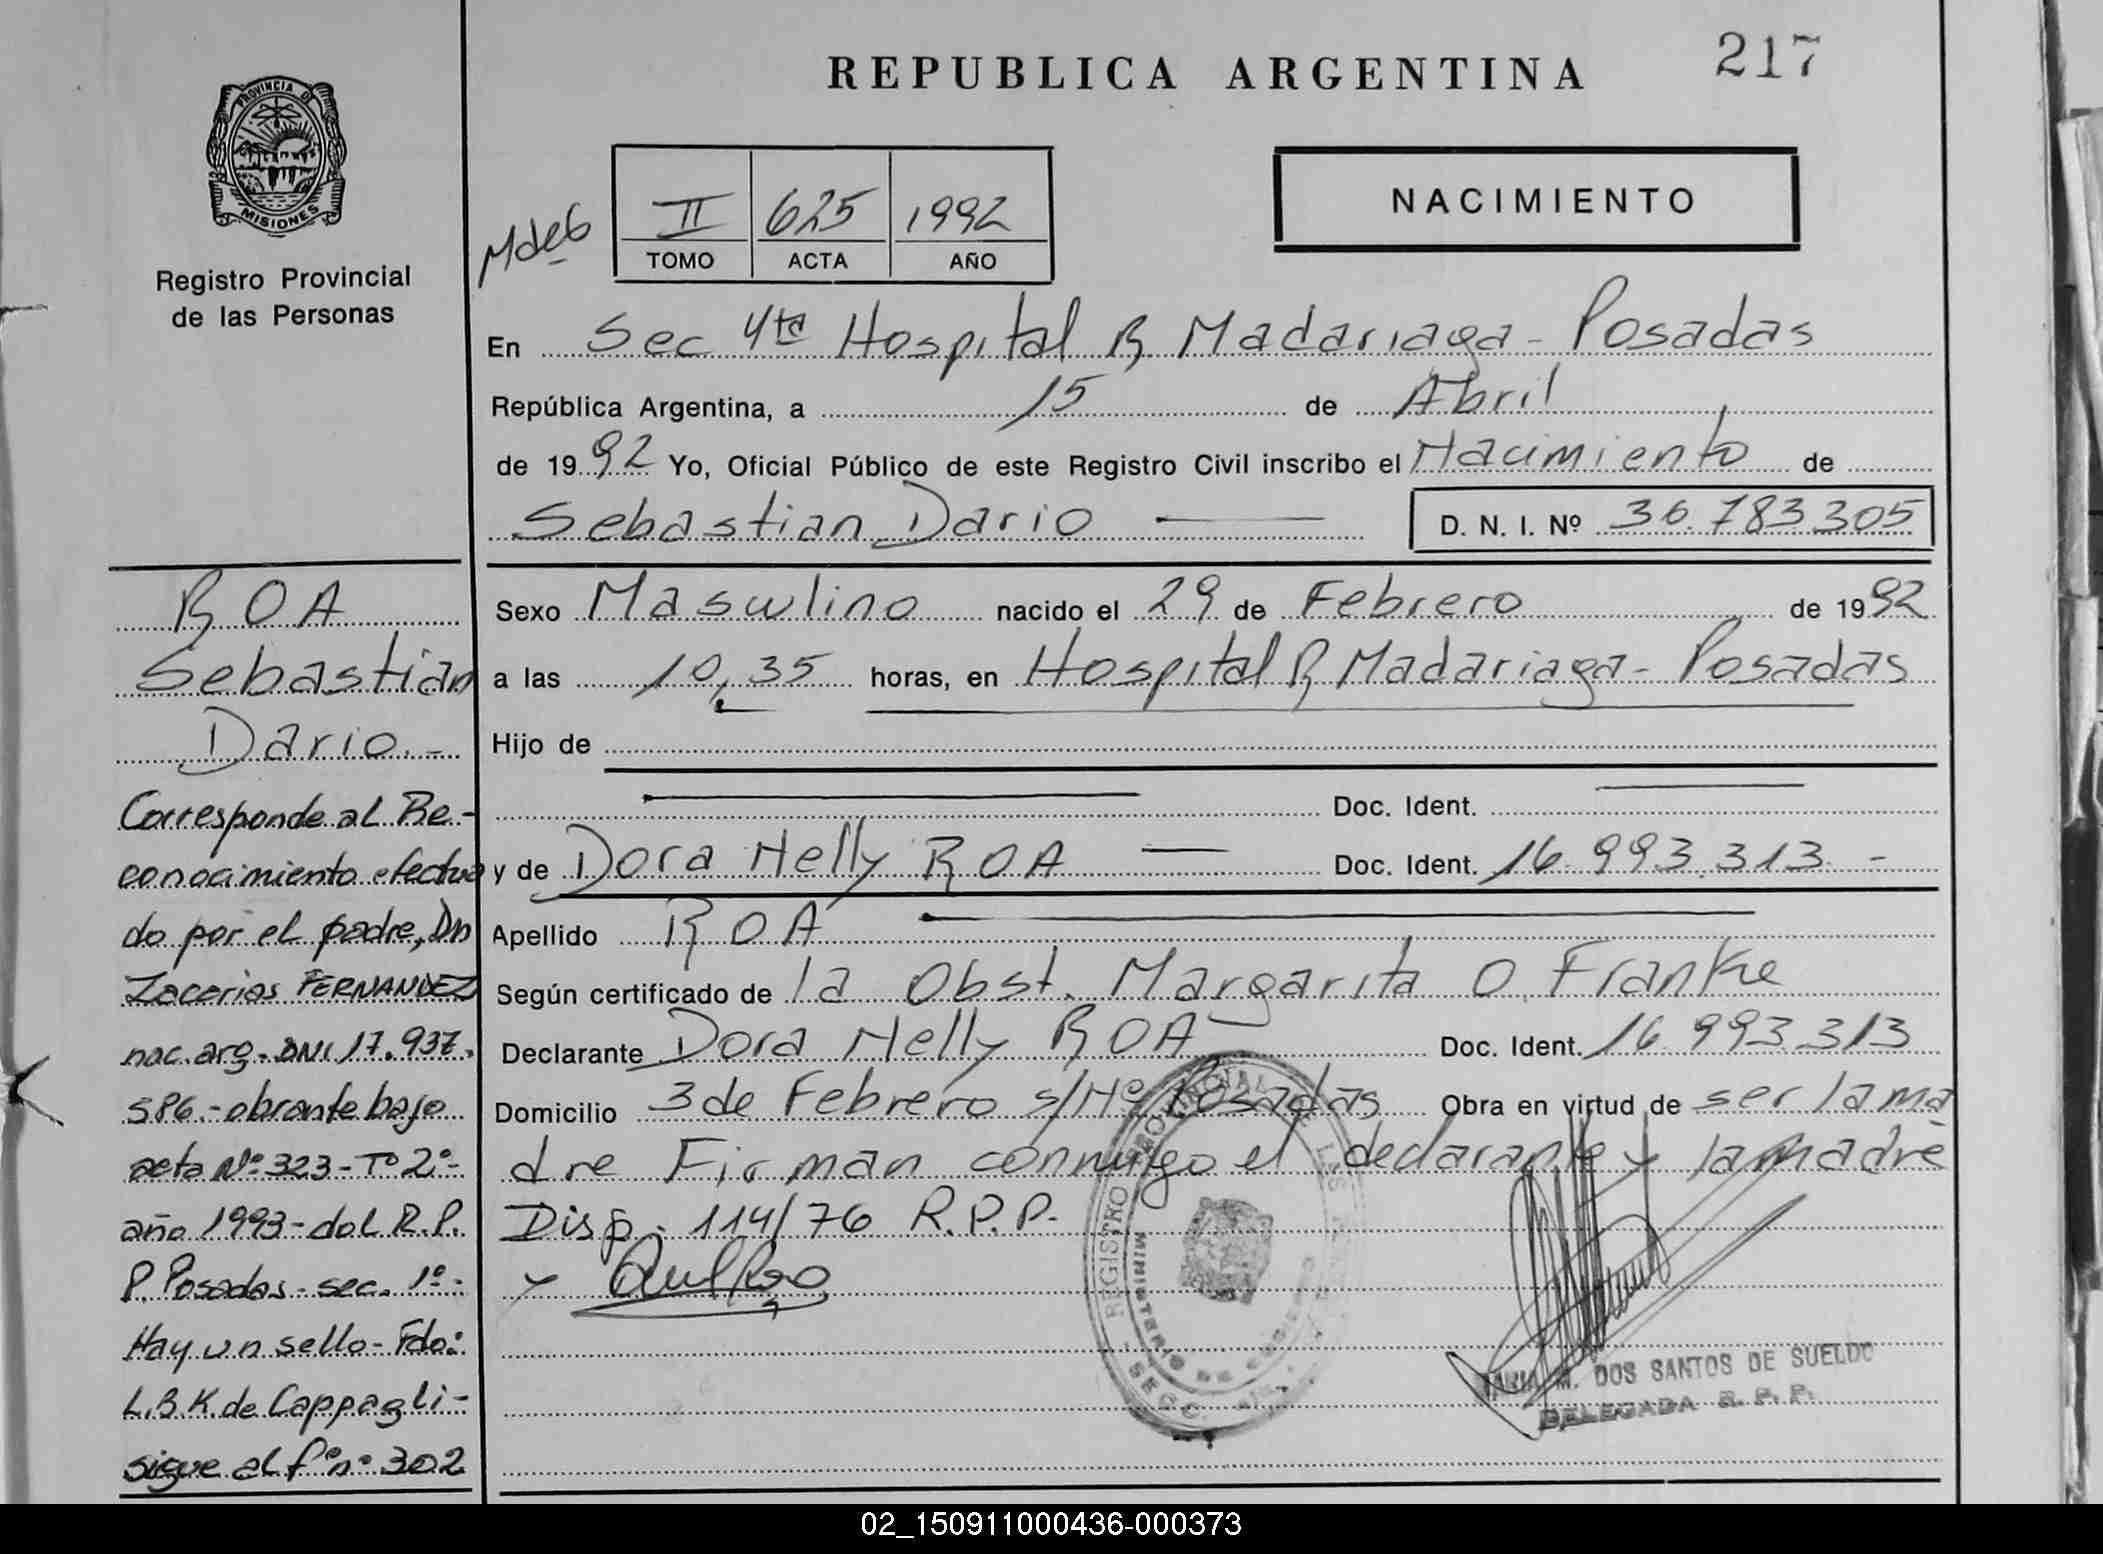 REPUBLICA ARGENTINA
217
PROVINCIA DE
MISIONES
Registro Provincial
de las Personas
II 625 1992
TOMO ACTA AÑO
NACIMIENTO
En Sec 4ta Hospital R Madariaga - Posadas
República Argentina, a 15 de Abril
de 1992 Yo, Oficial Público de este Registro Civil inscribo el Nacimiento de
Sebastian Dario D. N. I. Nº 36.783.305
Sexo Masculino nacido el 29 de Febrero de 1992
a las 10,35 horas, en Hospital R Madariaga - Posadas
Hijo de
Doc. Ident.
y de Dora Nelly ROA Doc. Ident. 16.993.313 -
Apellido ROA
Según certificado de la Obst. Margarita O. Franke
Declarante Dora Nelly ROA Doc. Ident. 16.993.313
Domicilio 3 de Febrero s/Nº Posadas Obra en virtud de ser la ma
dre Firman conmigo el declarante y la madre
Disp. 114/76 R.P.P.-
ROA
Sebastian
Dario.-
Corresponde al Re-
conocimiento efectua
do por el padre, Dn
Zacarias FERNANDEZ
nac. arg. DNI 17.937.
586.- obrante bajo
acta Nº 323 - Tº 2º-
año 1993 - del R.P.
P. Posadas - sec. 1º-
Hay un sello - Fdo:
L.B.K de Cappagli-
sigue al fº nº 302
REGISTRO PROVINCIAL DE LAS
MINISTERIO DE GOBIERNO
SECC.
M. DOS SANTOS DE SUELDO
DELEGADA R. P. P.
02_150911000436-000373